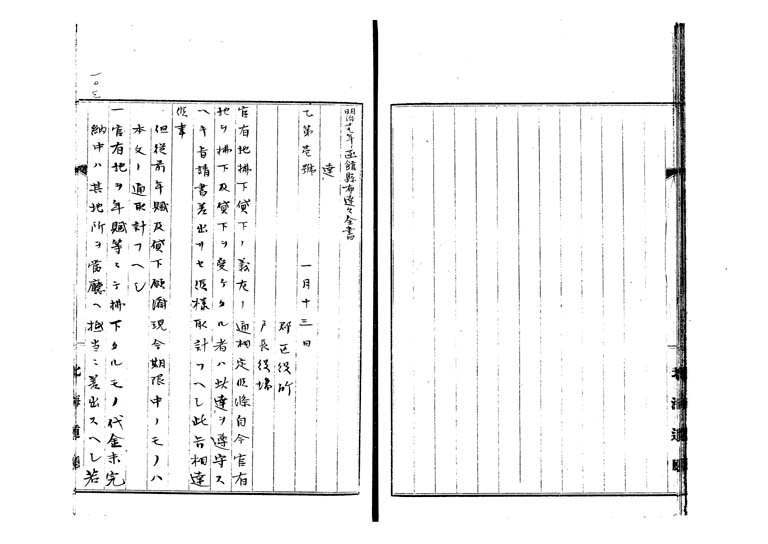 明治十九年函館縣布達々全書
達
乙第壱號　一月十三日
郡区役所
戸長役場
官有地拂下貸下ノ義左ノ通相定候條自今官有
地ヲ拂下及貸下ヲ受ケタル者ハ此達ヲ遵守ス
ヘキ旨請書差出サセ候様取計フヘシ此旨相達
候事
但従前年賦及貸下願済現今期限中ノモノハ
本文ノ通取計フヘシ
一官有地ヲ年賦等ニテ拂下タルモノ代金未完
納中ハ其地所ヲ當廳ヘ抵当ニ差出スヘシ若
一〇三
北海道廳